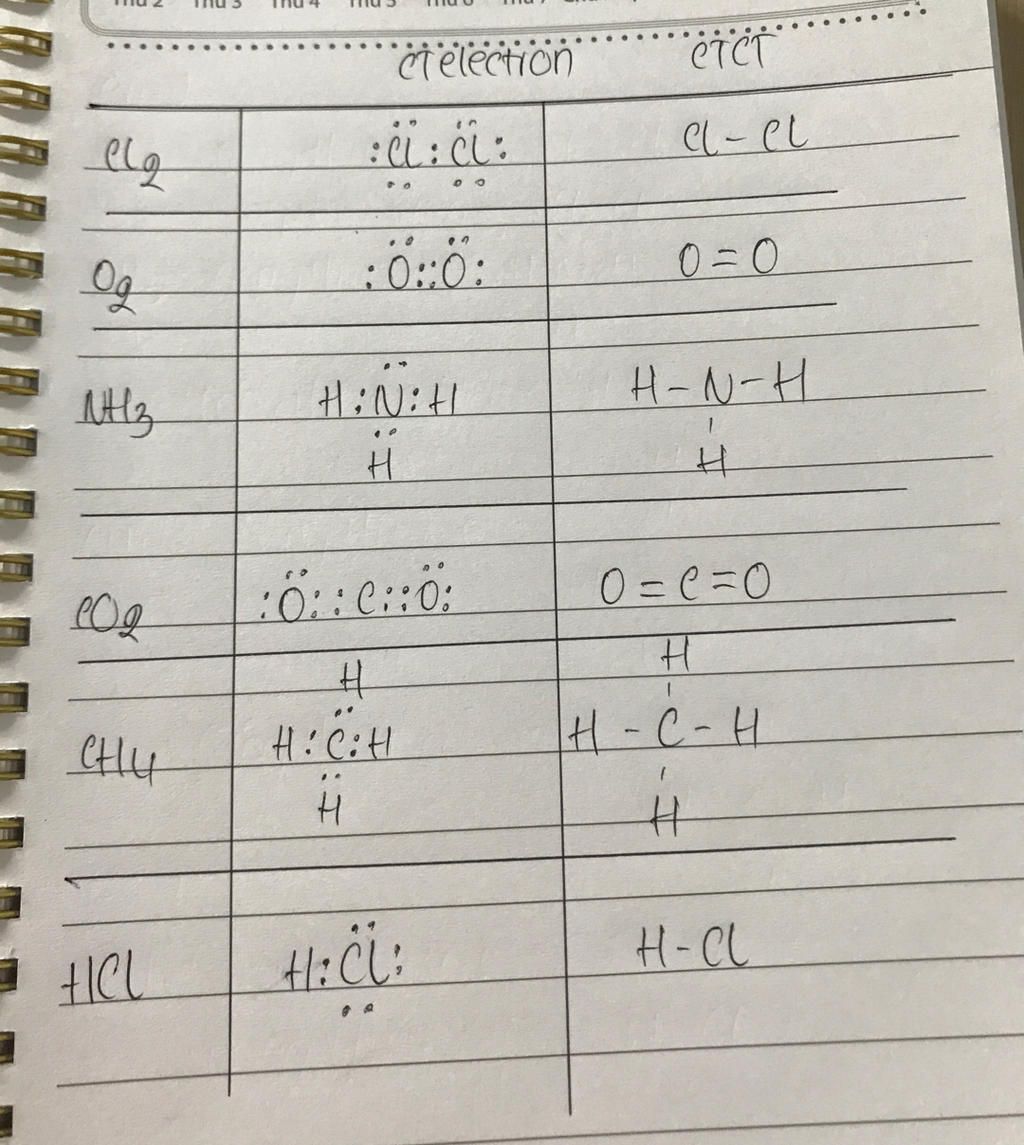 CTelection CTCT
Cl2 :C̈l:C̈l: Cl-Cl
O2 :Ö::Ö: O=O
NH3 H:N̈:H H-N-H
H H
CO2 :Ö::C::Ö: O=C=O
H H
CH4 H:C̈:H H-C-H
H H
HCl H:C̈l: H-Cl